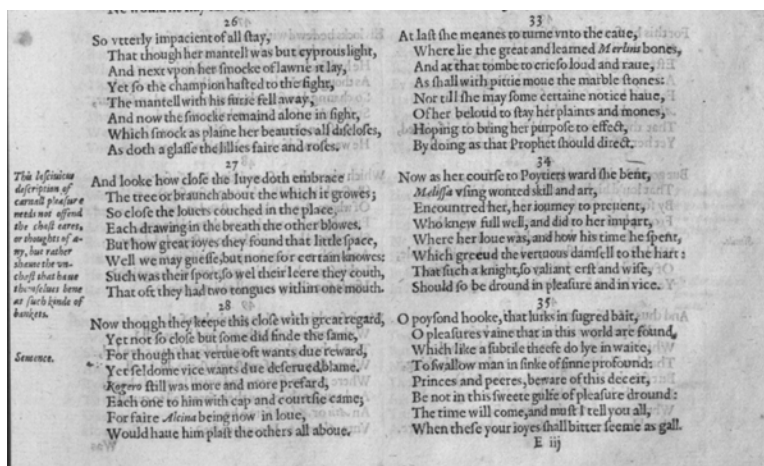 26
So vtterly impacient of all ſtay,
That though her mantell was but cyprous light,
And next vpon her ſmocke of lawne it lay,
Yet ſo the champion haſted to the fight,
The mantell with his furie fell away,
And now the ſmocke remaind alone in fight,
Which ſmock as plaine her beauties all diſcloſes,
As doth a glaſſe the lillies faire and roſes.
27
And looke how cloſe the Iuye doth embrace
The tree or braunch about the which it growes;
So cloſe the louers couched in the place,
Each drawing in the breath the other blowes.
But how great ioyes they found that little ſpace,
Well we may gueſſe, but none for certain knowes:
Such was their ſport, ſo wel their leere they couth,
That oft they had two tongues within one mouth.
28
Now though they keepe this cloſe with great regard,
Yet not ſo cloſe but ſome did finde the ſame,
For though that vertue oft wants due reward,
Yet ſeldome vice wants due deſerued blame.
Rogero ſtill was more and more prefard,
Each one to him with cap and courtſie came;
For faire Alcina being now in loue,
Would haue him plaſt the others all aboue.
This laſciuious
deſcription of
carnall pleaſure
needs not offend
the chaſt eares,
or thoughts of a-
ny, but rather
ſhame the vn-
chaſt that haue
themſelues bene
at ſuch kinde of
bankets.
Sentence.
33
At laſt ſhe meanes to turne vnto the caue,
Where lie the great and learned Merlins bones,
And at that tombe to crie ſo loud and raue,
As ſhall with pittie moue the marble ſtones:
Nor till ſhe may ſome certaine notice haue,
Of her beloud to ſtay her plaints and mones,
Hoping to bring her purpoſe to effect,
By doing as that Prophet ſhould direct.
34
Now as her courſe to Poytiers ward ſhe bent,
Meliſſa vſing wonted skill and art,
Encountred her, her iourney to preuent,
Who knew full well, and did to her impart,
Where her loue was, and how his time he ſpent,
Which greeud the vertuous damſell to the hart:
That ſuch a knight, ſo valiant erſt and wiſe,
Should ſo be dround in pleaſure and in vice.
35
O poyſond hooke, that lurks in ſugred bait,
O pleaſures vaine that in this world are found,
Which like a ſubtile theefe do lye in waite,
To ſwallow man in ſinke of ſinne profound:
Princes and peeres, beware of this deceit,
Be not in this ſweete gulfe of pleaſure dround:
The time will come, and muſt I tell you all,
When theſe your ioyes ſhall bitter ſeeme as gall.
E iij